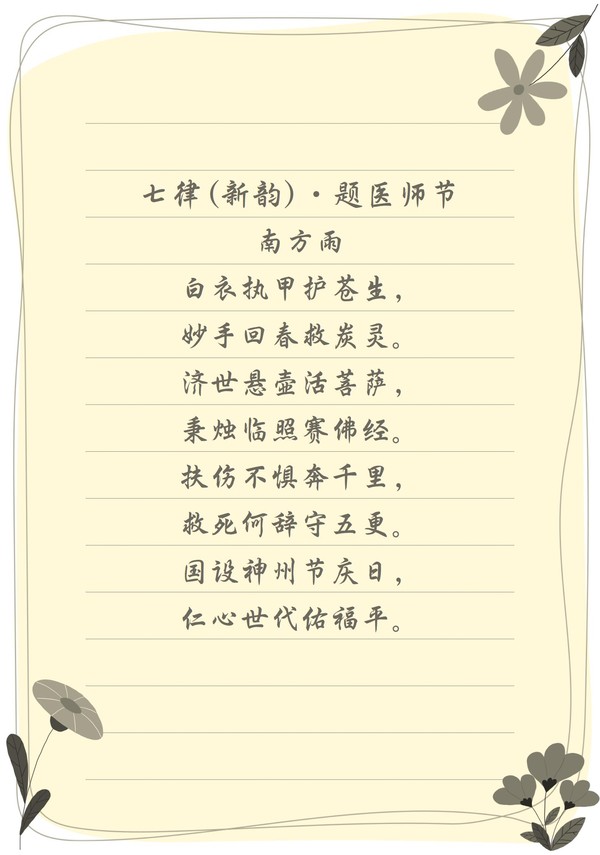 七律(新韵)·题医师节
南方雨
白衣执甲护苍生，
妙手回春救炭灵。
济世悬壶活菩萨，
秉烛临照赛佛经。
扶伤不惧奔千里，
救死何辞守五更。
国设神州节庆日，
仁心世代佑福平。